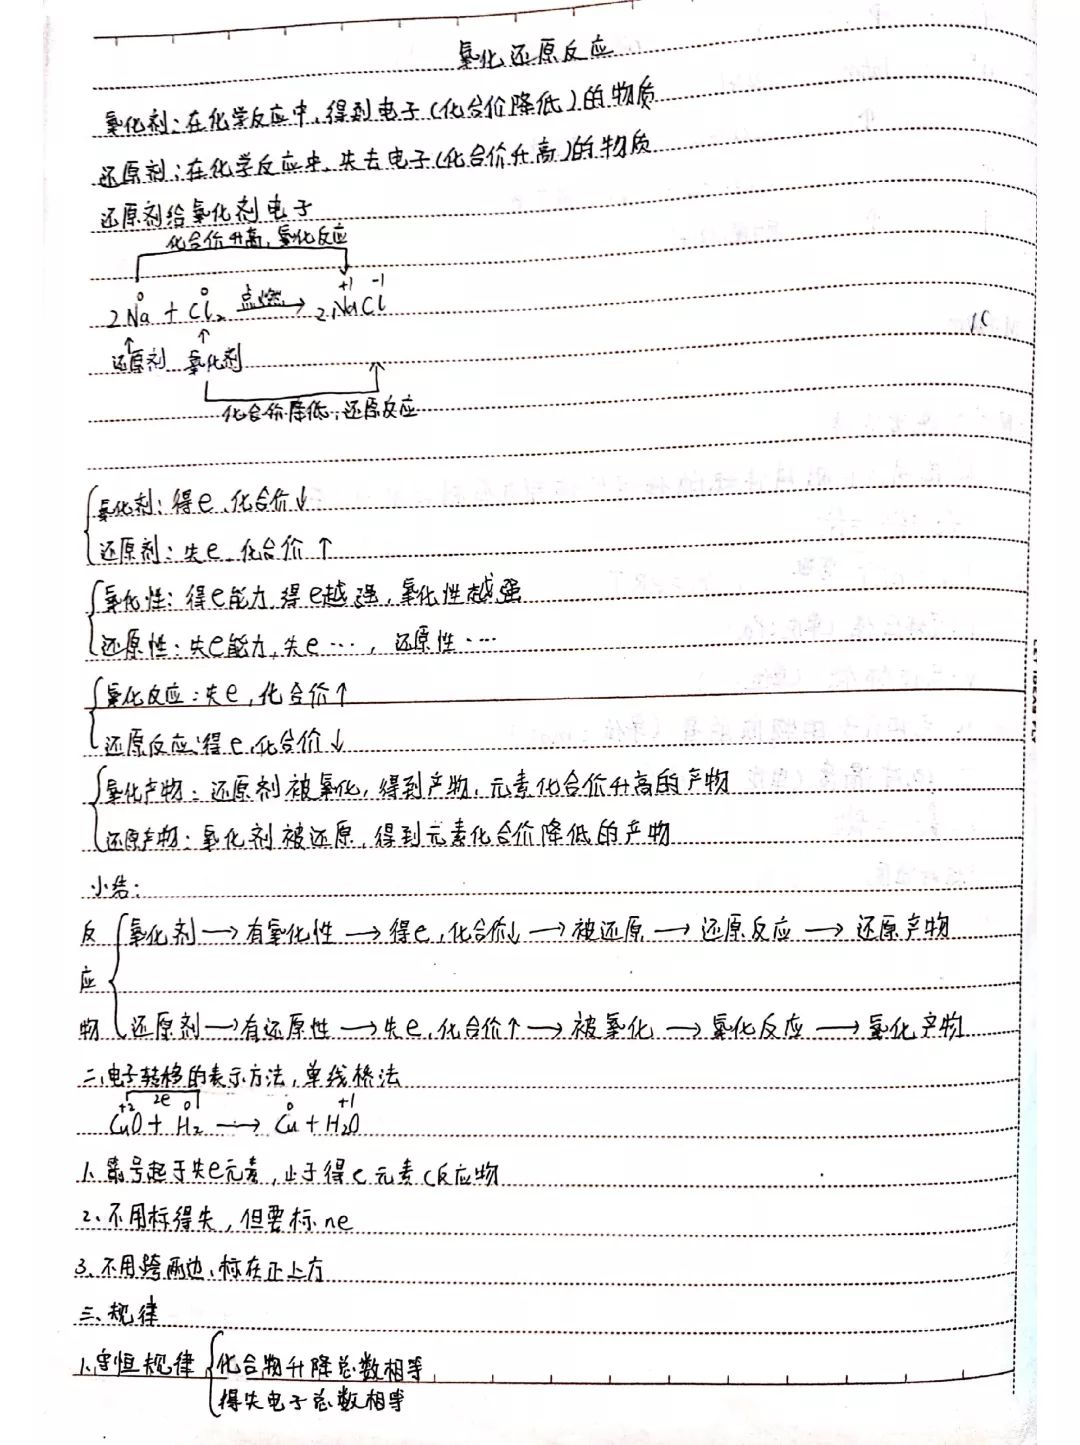 氧化还原反应
氧化剂：在化学反应中，得到电子（化合价降低）的物质
还原剂：在化学反应中，失去电子（化合价升高）的物质
还原剂给氧化剂电子
化合价升高，氧化反应
0 0 +1 -1
2Na + Cl₂ 点燃→ 2NaCl
↑ ↑
还原剂 氧化剂
化合价降低，还原反应
氧化剂：得e，化合价↓
还原剂：失e，化合价↑
氧化性：得e能力，得e越强，氧化性越强
还原性：失e能力，失e…，还原性…
氧化反应：失e，化合价↑
还原反应：得e，化合价↓
氧化产物：还原剂被氧化，得到产物，元素化合价升高的产物
还原产物：氧化剂被还原，得到元素化合价降低的产物
小结：
反应物
氧化剂→有氧化性→得e，化合价↓→被还原→还原反应→还原产物
还原剂→有还原性→失e，化合价↑→被氧化→氧化反应→氧化产物
二、电子转移的表示方法，单线桥法
2e
+2 0 0 +1
CuO + H₂ → Cu + H₂O
1、箭号起于失e元素，止于得e元素（反应物
2、不用标得失，但要标ne
3、不用跨两边、标在正上方
三、规律
1、守恒规律
化合物升降总数相等
得失电子总数相等